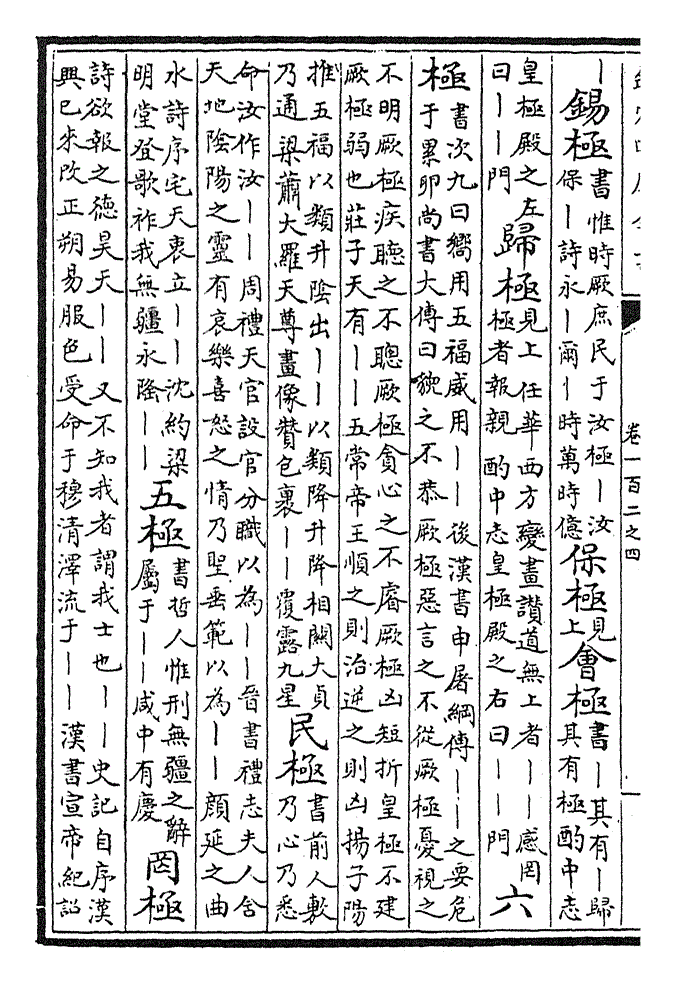 卷一百二之四
｜
錫極
書惟時厥庶民于汝極｜汝
保｜詩永｜爾｜時萬時億
保極
見
上
會極
書｜其有｜歸
其有極酌中志
皇極殿之左
曰｜｜門
歸極
見上 任華西方變畫讚道無上者｜｜感罔
極者報親 酌中志皇極殿之右曰｜｜門
六
極
書次九曰嚮用五福威用｜｜ 後漢書申屠綱傳｜｜之要危
于累卵尚書大傳曰貌之不恭厥極惡言之不從厥極憂視之
不明厥極疾聽之不聰厥極貪心之不睿厥極凶短折皇極不建
厥極弱也莊子天有｜｜五常帝王順之則治逆之則凶揚子陽
推五福以類升陰出｜｜以類降升降相關大貞
乃通 梁蕭大羅天尊畫像贊包裹｜｜覆露九星
民極
書前人敷
乃心乃悉
命汝作汝｜｜ 周禮天官設官分職以為｜｜晉書禮志夫人含
天地陰陽之靈有哀樂喜怒之情乃聖垂範以為｜｜ 顔延之曲
水詩序宅天衷立｜｜沈約梁
明堂登歌祚我無疆永隆｜｜
五極
書哲人惟刑無疆之辭
屬于｜｜咸中有慶
罔極
詩欲報之德昊天｜｜ 又不知我者謂我士也｜｜史記自序漢
興已來改正朔易服色受命于穆清澤流于｜｜ 漢書宣帝紀詔